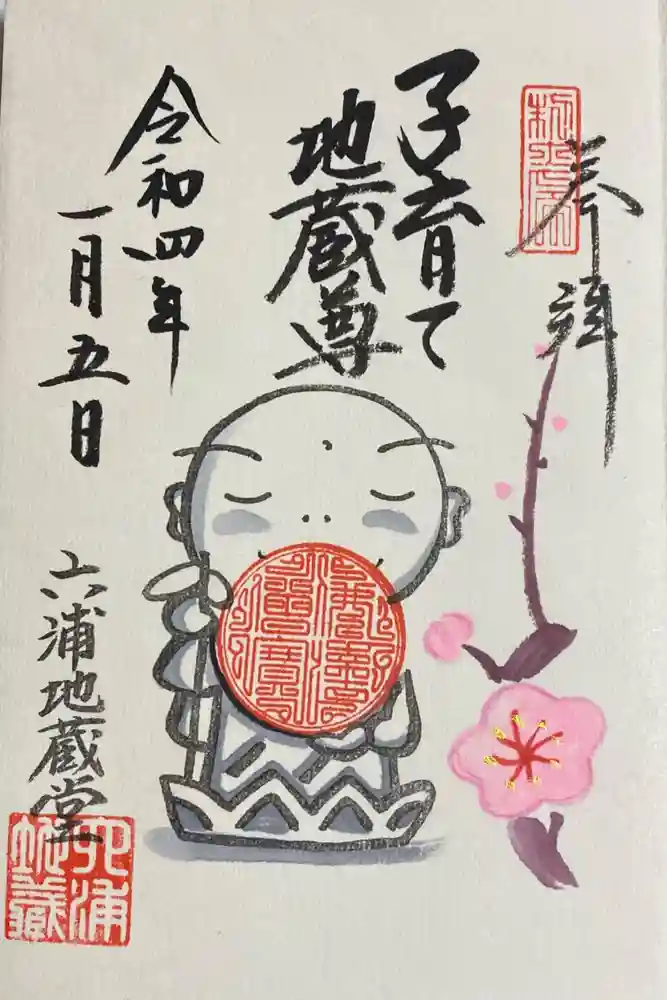 奉拝
子育て
地蔵尊
令和四年
一月五日
六浦地蔵堂
佛法僧寶
六浦
地蔵